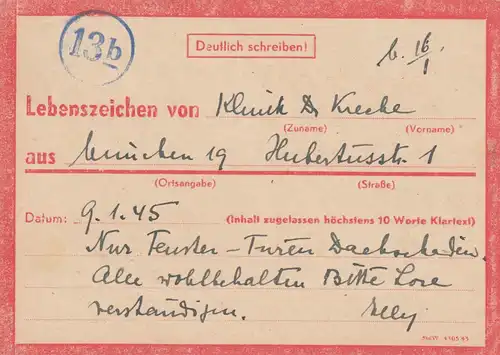 13b
Deutlich schreiben!
b. 16/1
Lebenszeichen von Klinik Dr Krecke
(Zuname) (Vorname)
aus München 19 Hubertusstr. 1
(Ortsangabe) (Straße)
Datum: 9.1.45 (Inhalt zugelassen höchstens 10 Worte Klartext)
Nur Fenster - Türen Dachschäden.
Alle wohlbehalten Bitte Lore
verständigen. Elly